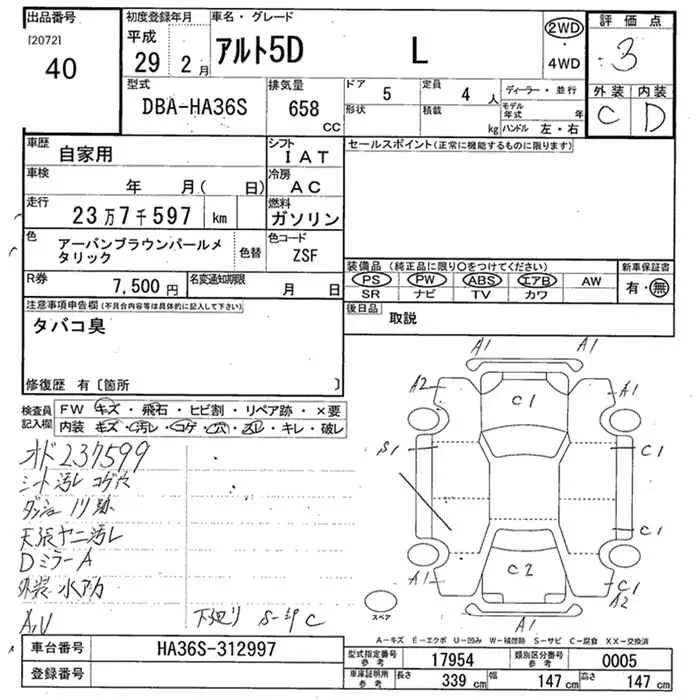 出品番号
[2072]
40
初度登録年月
平成
29 2月
車名・グレード
アルト5D L
2WD
・
4WD
評価点
3
外装 内装
C D
型式
DBA-HA36S
排気量
658
CC
ドア 5
定員 4 人
形状
積載 kg
ディーラー・並行
モデル年式 年
ハンドル 左・右
車歴
自家用
シフト
IAT
セールスポイント(正常に機能するものに限ります)
車検
年 月( 日)
冷房
AC
走行
23万7千597 km
燃料
ガソリン
色
アーバンブラウンパールメ
タリック
色替
色コード
ZSF
装備品 (純正品に限り〇をつけてください)
PS PW ABS エアB AW
SR ナビ TV カワ
新車保証書
有・無
R券
7,500円
名変通知期限
月 日
後日品
取説
注意事項申告欄(不具合内容等は具体的に記入して下さい)
タバコ臭
修復歴 有〔箇所 〕
検査員
記入欄
FW キズ・飛石・ヒビ割・リペア跡・×要
内装 キズ・汚レ・コゲ・穴・スレ・キレ・破レ
オド237599
シート汚レ コゲ穴
ダッシュ ノリ跡
天張ヤニ汚レ
Dミラー A
外装 水アカ
A,U
下廻リ S-中 C
A1 A1
A2 A1
C1
S1 C1
C1
C2
A1 C1
A2
A1
スペア
A-キズ E-エクボ U-凹み W-補修跡 S-サビ C-腐食 XX-交換済
車台番号
HA36S-312997
登録番号
型式指定番号
参考
17954
類別区分番号
参考
0005
車庫証明用
参考
長さ 339 cm
幅 147 cm
高さ 147 cm